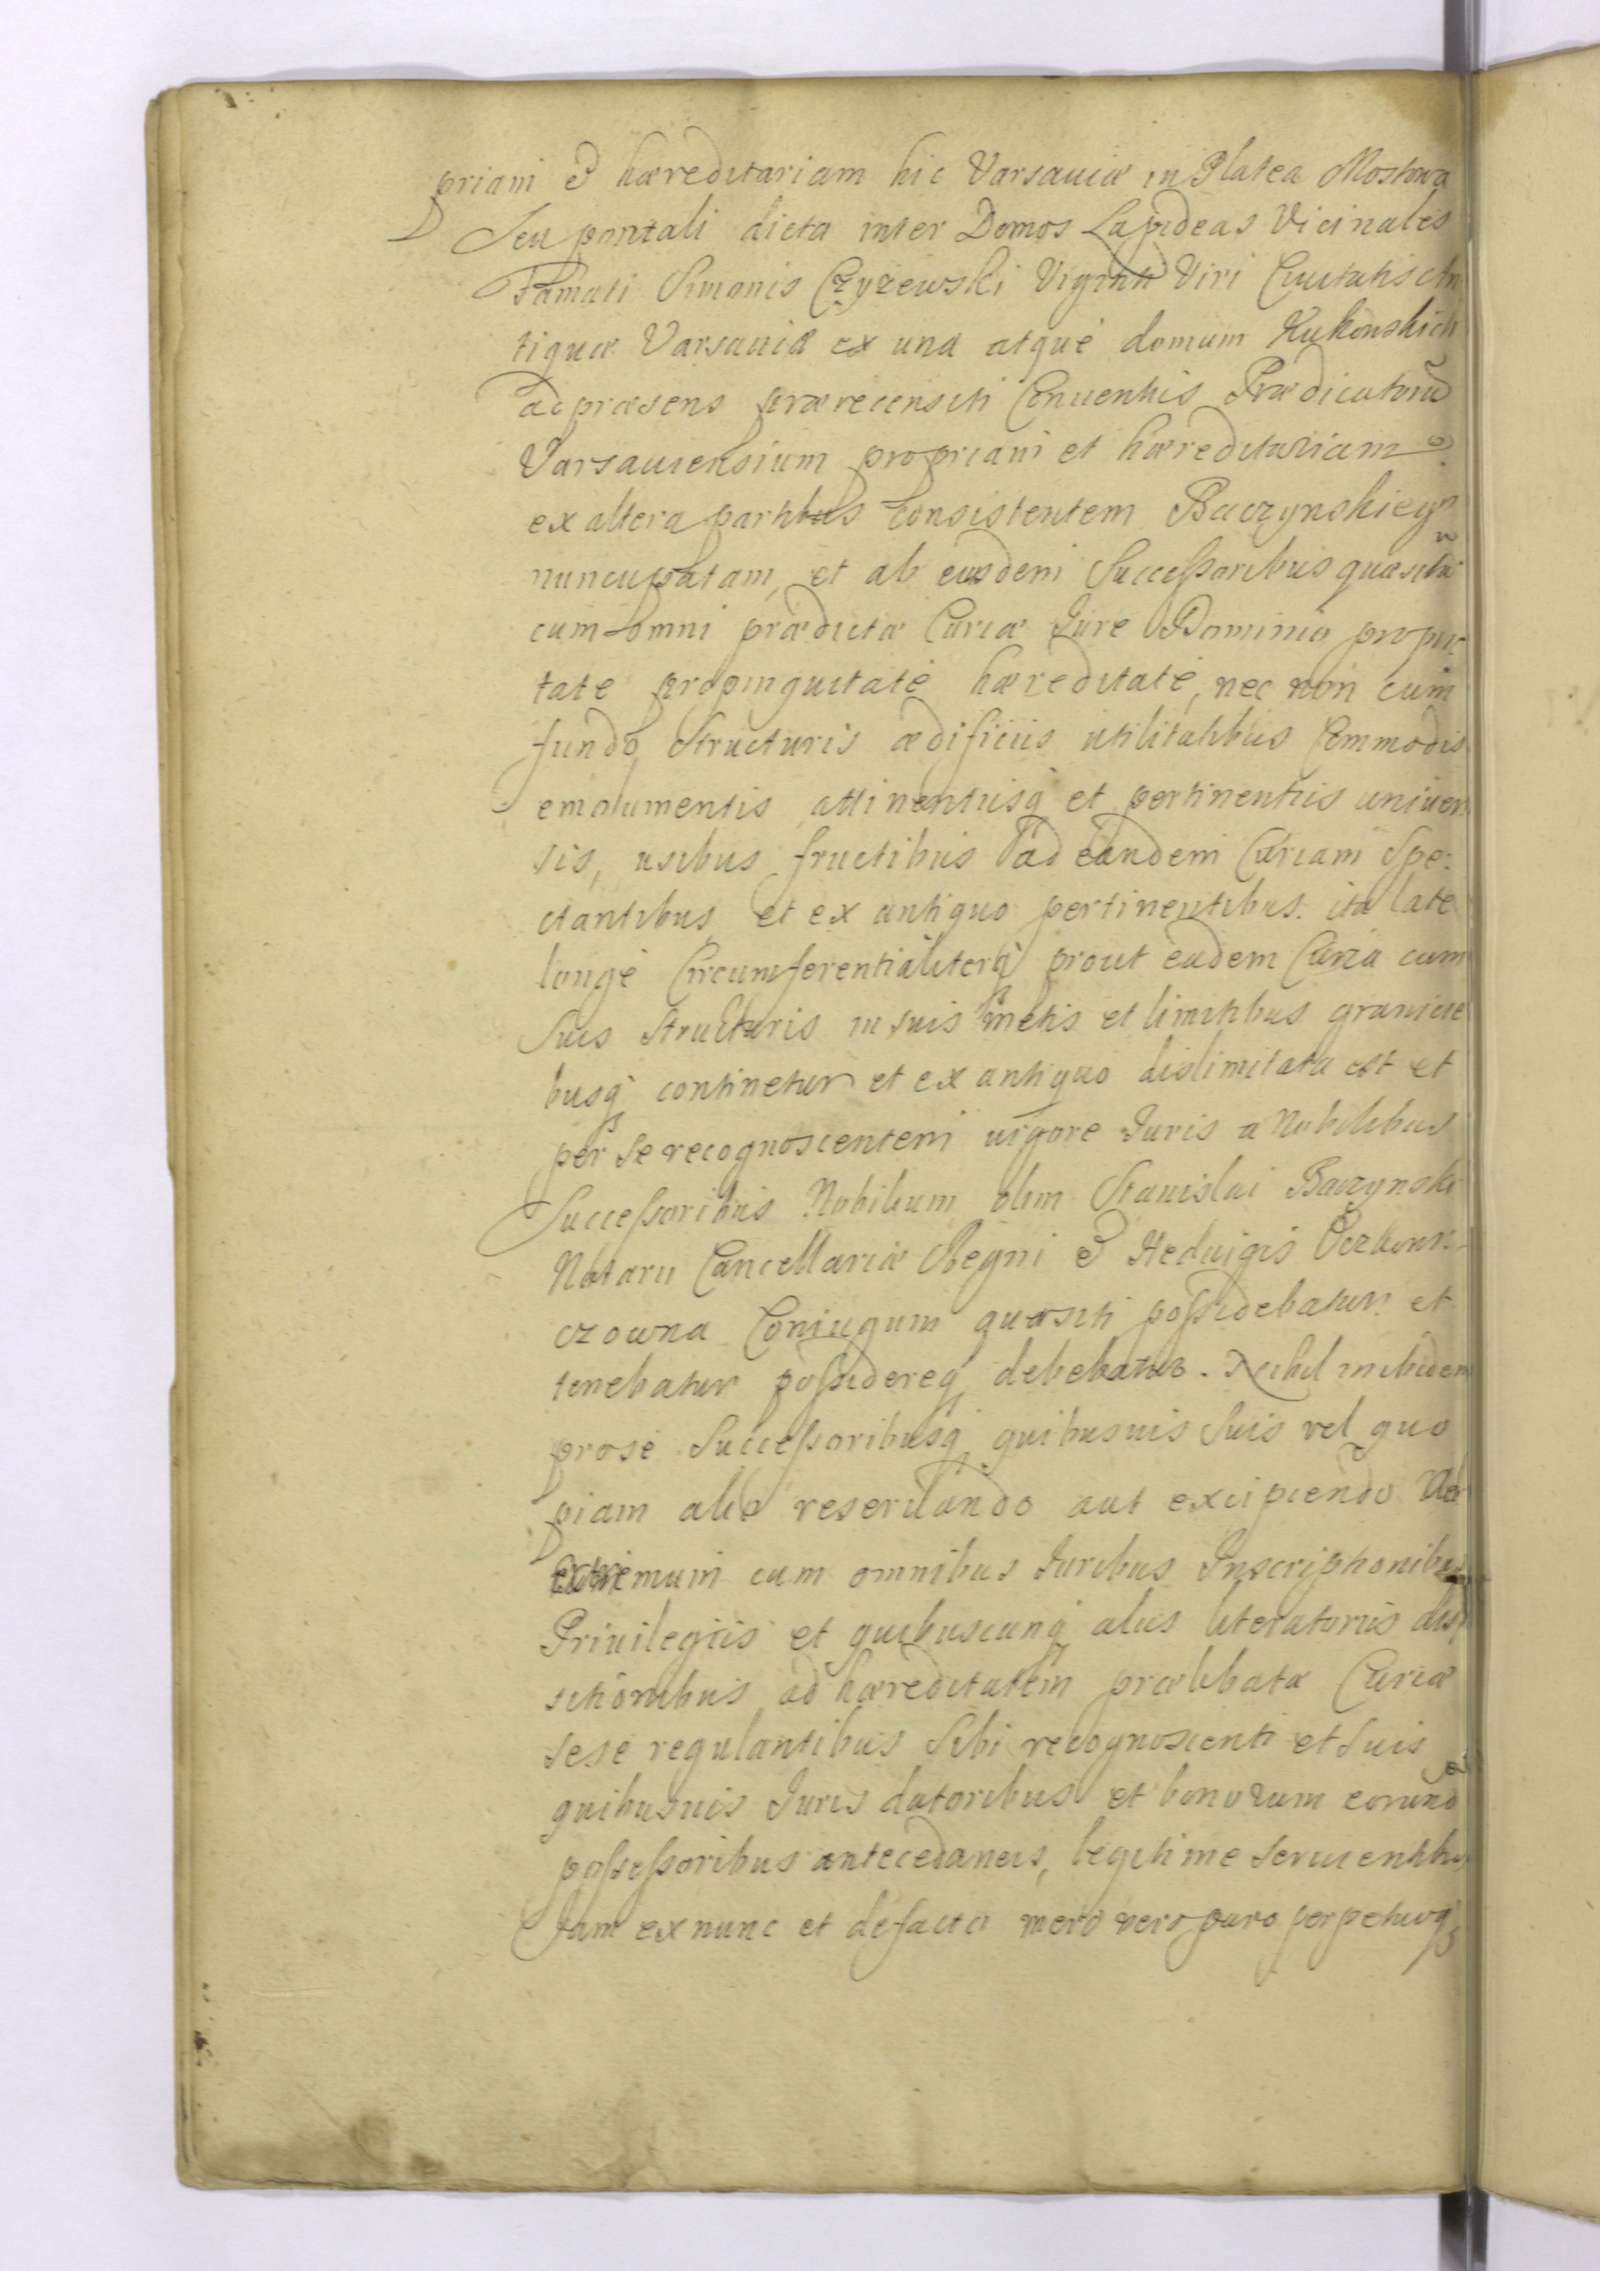 priam & hæreditariam hic Varsauiæ in Platea Mostowa
Seu pontali dicta inter Domos Lapideas Vicinales
Famati Simonis Czyzewski Viginti Viri Ciuitatis An
tiquæ Varsauiæ ex una atque domum Kukowskich
ad præsens prærecensiti Conuentus Prædicatorũ
Varsauiensium propriam et hæreditariam
ex altera partibus consistentem Baczynskiego
nuncupatam, et ab eisdem Successoribus quæsitã
cum omni prædictæ Curiæ Iure Dominio proprie
tate propinquitate hæreditate, nec non cum
fundo, Structuris ædificiis utilitatibus Commodis
emolumentis attinentiisq et pertinentiis uniuer
sis, usibus fructibus ad eandem Curiam Spe:
ctantibus et ex antiquo pertinentibus. ita late
longe Circumferentialiterq prout eadem Curia cum
Suis Structuris in suis metis et limitibus granicie
busq continetur et ex antiquo dislimitata est et
per se recognoscentem uigore Iuris a Nobilibus
Successoribus Nobilium olim Stanislai Baczynski
Notarii Cancellariæ Regni & Heduigis
czowna Coniugum quæsiti possidebatur et
tenebatur possidereq debebatur. Nihil inibidem
pro se Successoribusq quibusuis Suis vel quo
piam alio reseruando aut excipiendo
cum omnibus Iuribus Inscriptionibus
Priuilegiis et quibuscunq aliis literatoriis dispo
sitionibus ad hæreditatem prælibatæ Curiæ
sese regulantibus Sibi recognoscenti et Suis
quibusuis Iuris datoribus et bonorum eorund
possessoribus antecedaneis, legitime seruientibus
Iam ex nunc et de facto mero vero puro perpetuoq